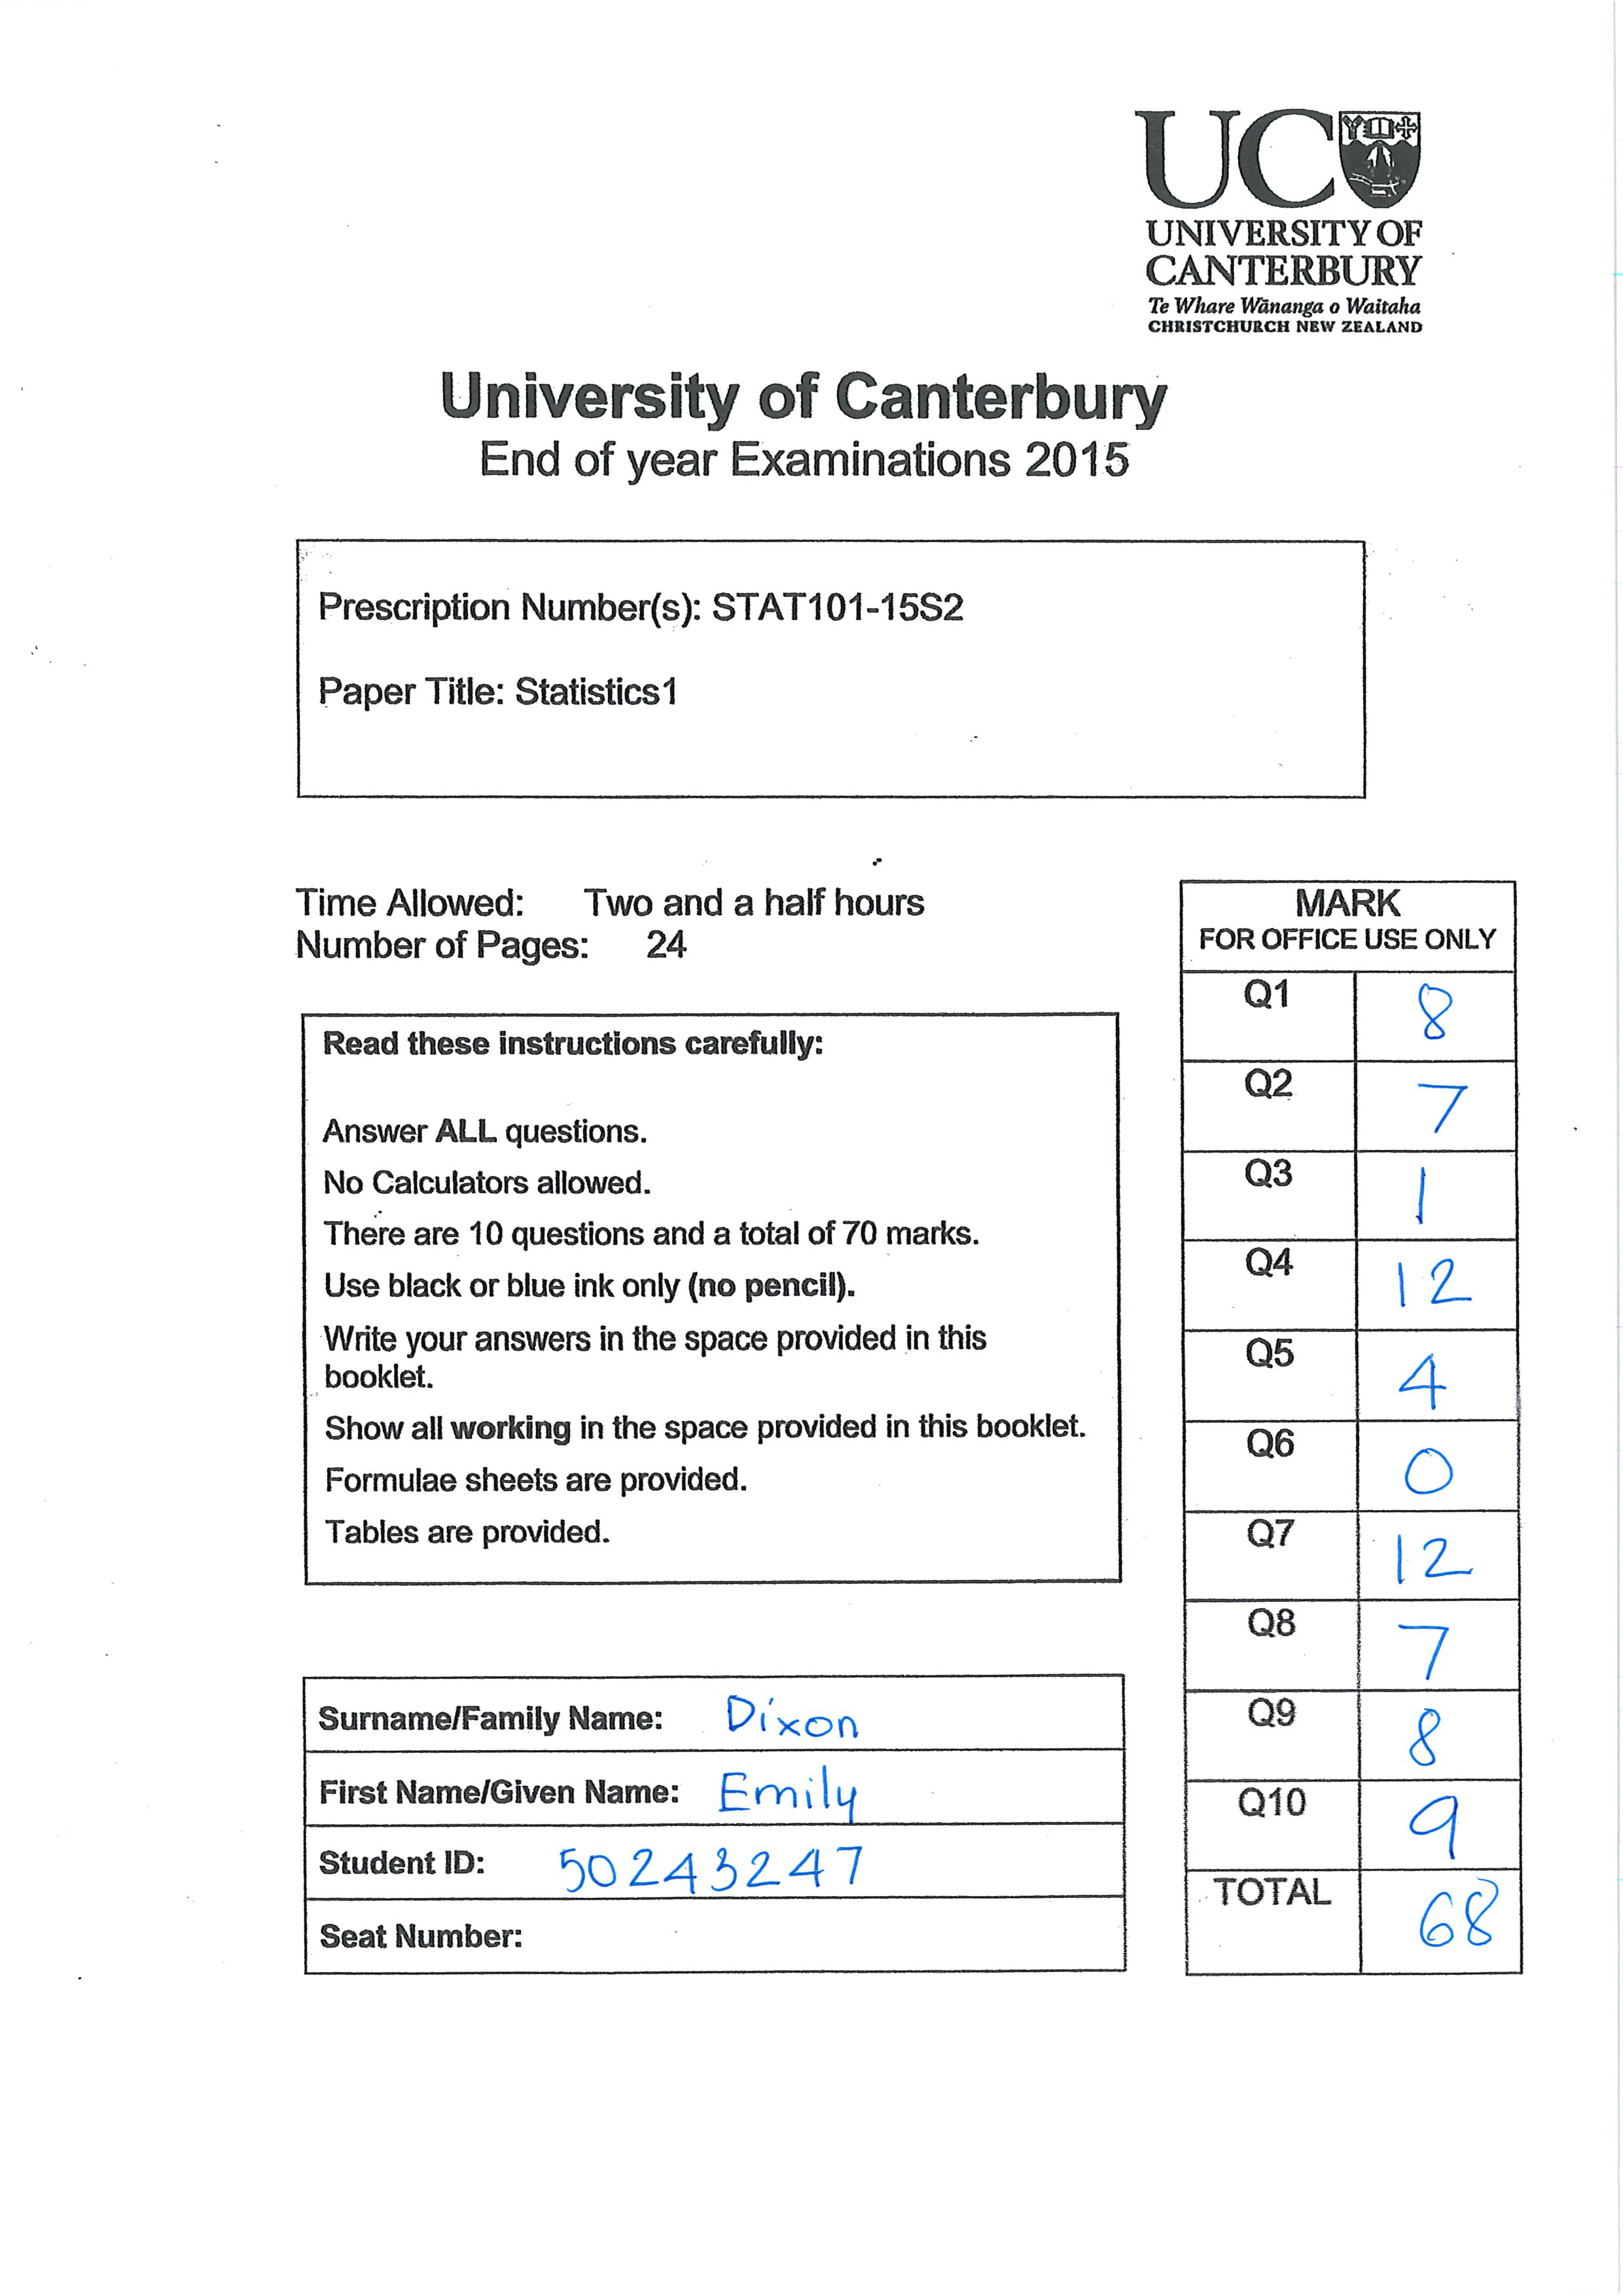 UC
UNIVERSITY OF
CANTERBURY
Te Whare Wānanga o Waitaha
CHRISTCHURCH NEW ZEALAND
University of Canterbury
End of year Examinations 2015
Prescription Number(s): STAT101-15S2
Paper Title: Statistics1
Time Allowed: Two and a half hours
Number of Pages: 24
Read these instructions carefully:
Answer ALL questions.
No Calculators allowed.
There are 10 questions and a total of 70 marks.
Use black or blue ink only (no pencil).
Write your answers in the space provided in this
booklet.
Show all working in the space provided in this booklet.
Formulae sheets are provided.
Tables are provided.
MARK
FOR OFFICE USE ONLY
Q1 8
Q2 7
Q3 1
Q4 12
Q5 4
Q6 0
Q7 12
Q8 7
Q9 8
Q10 9
TOTAL 68
Surname/Family Name: Dixon
First Name/Given Name: Emily
Student ID: 50243247
Seat Number: